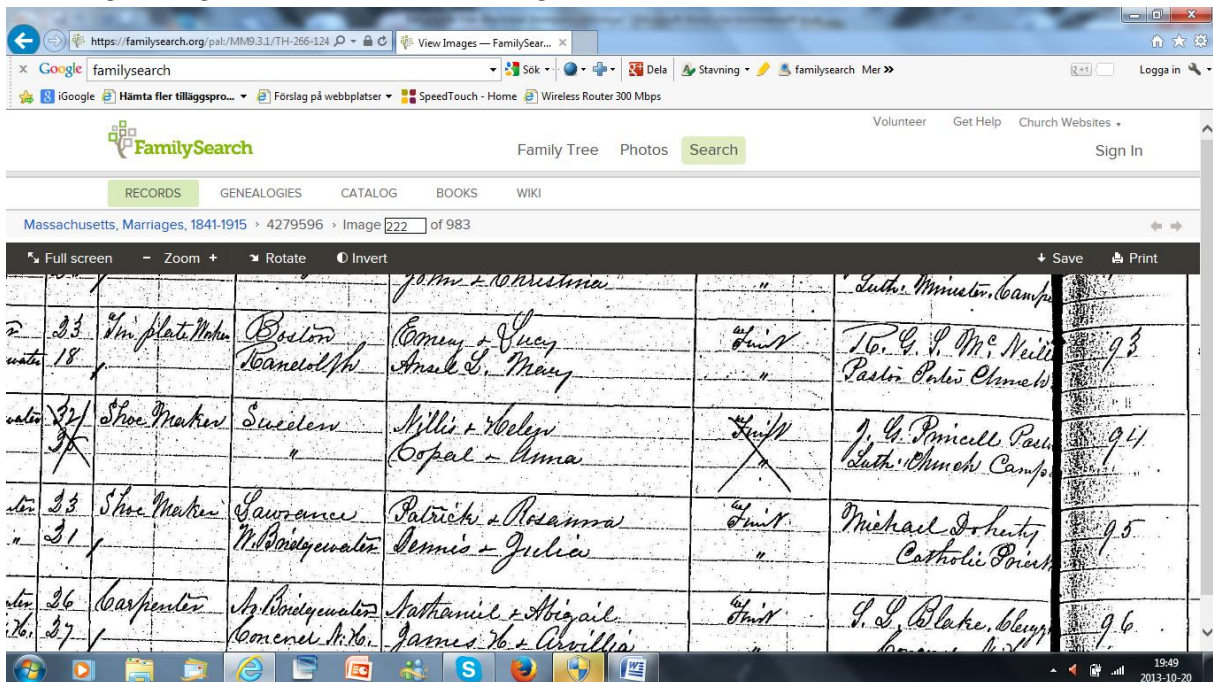 https://familysearch.org/pal:/MM9.3.1/TH-266-124 View Images — FamilySear...
Google familysearch Sök Dela Stavning familysearch Mer » Logga in
iGoogle Hämta fler tilläggspro... Förslag på webbplatser SpeedTouch - Home Wireless Router 300 Mbps
Volunteer Get Help Church Websites
FamilySearch Family Tree Photos Search Sign In
RECORDS GENEALOGIES CATALOG BOOKS WIKI
Massachusetts, Marriages, 1841-1915 › 4279596 › Image 222 of 983
Full screen - Zoom + Rotate Invert Save Print
John & Christina " Luth. Minister, Campe
23 Tin plate Worker Boston Emery & Lucy First 93
18 Randolph Ansel L. Mary " Pastor Porter Church
32 Shoe Maker Sweden Nillis & Helen First J. G. Princell Pastor 94
" Copal & Anna " Luth. Church Campe
23 Shoe Maker Lawrance Patrick & Rosanna First Michael Doherty 95
" 31 N. Bridgewater Dennis & Julia " Catholic Priest
26 Carpenter N. Bridgewater Nathaniel & Abigail First S. L. Blake, Clergy 96
37 N.H. James H. & Arvillia
19:49
2013-10-20